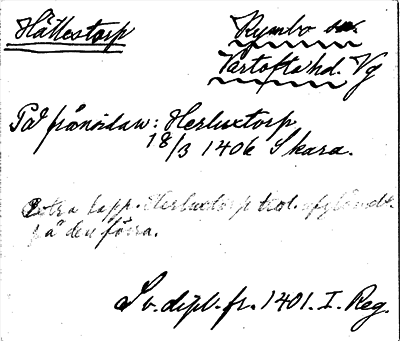 Hättestorp
Rymbo sn.
Vartofta hd. Vg
På frånsidan: Herluxtorp
18/3 1406 Skara.
papp. Herluxtorp
på den förra.
Sv. dipl. fr. 1401. I. Reg.